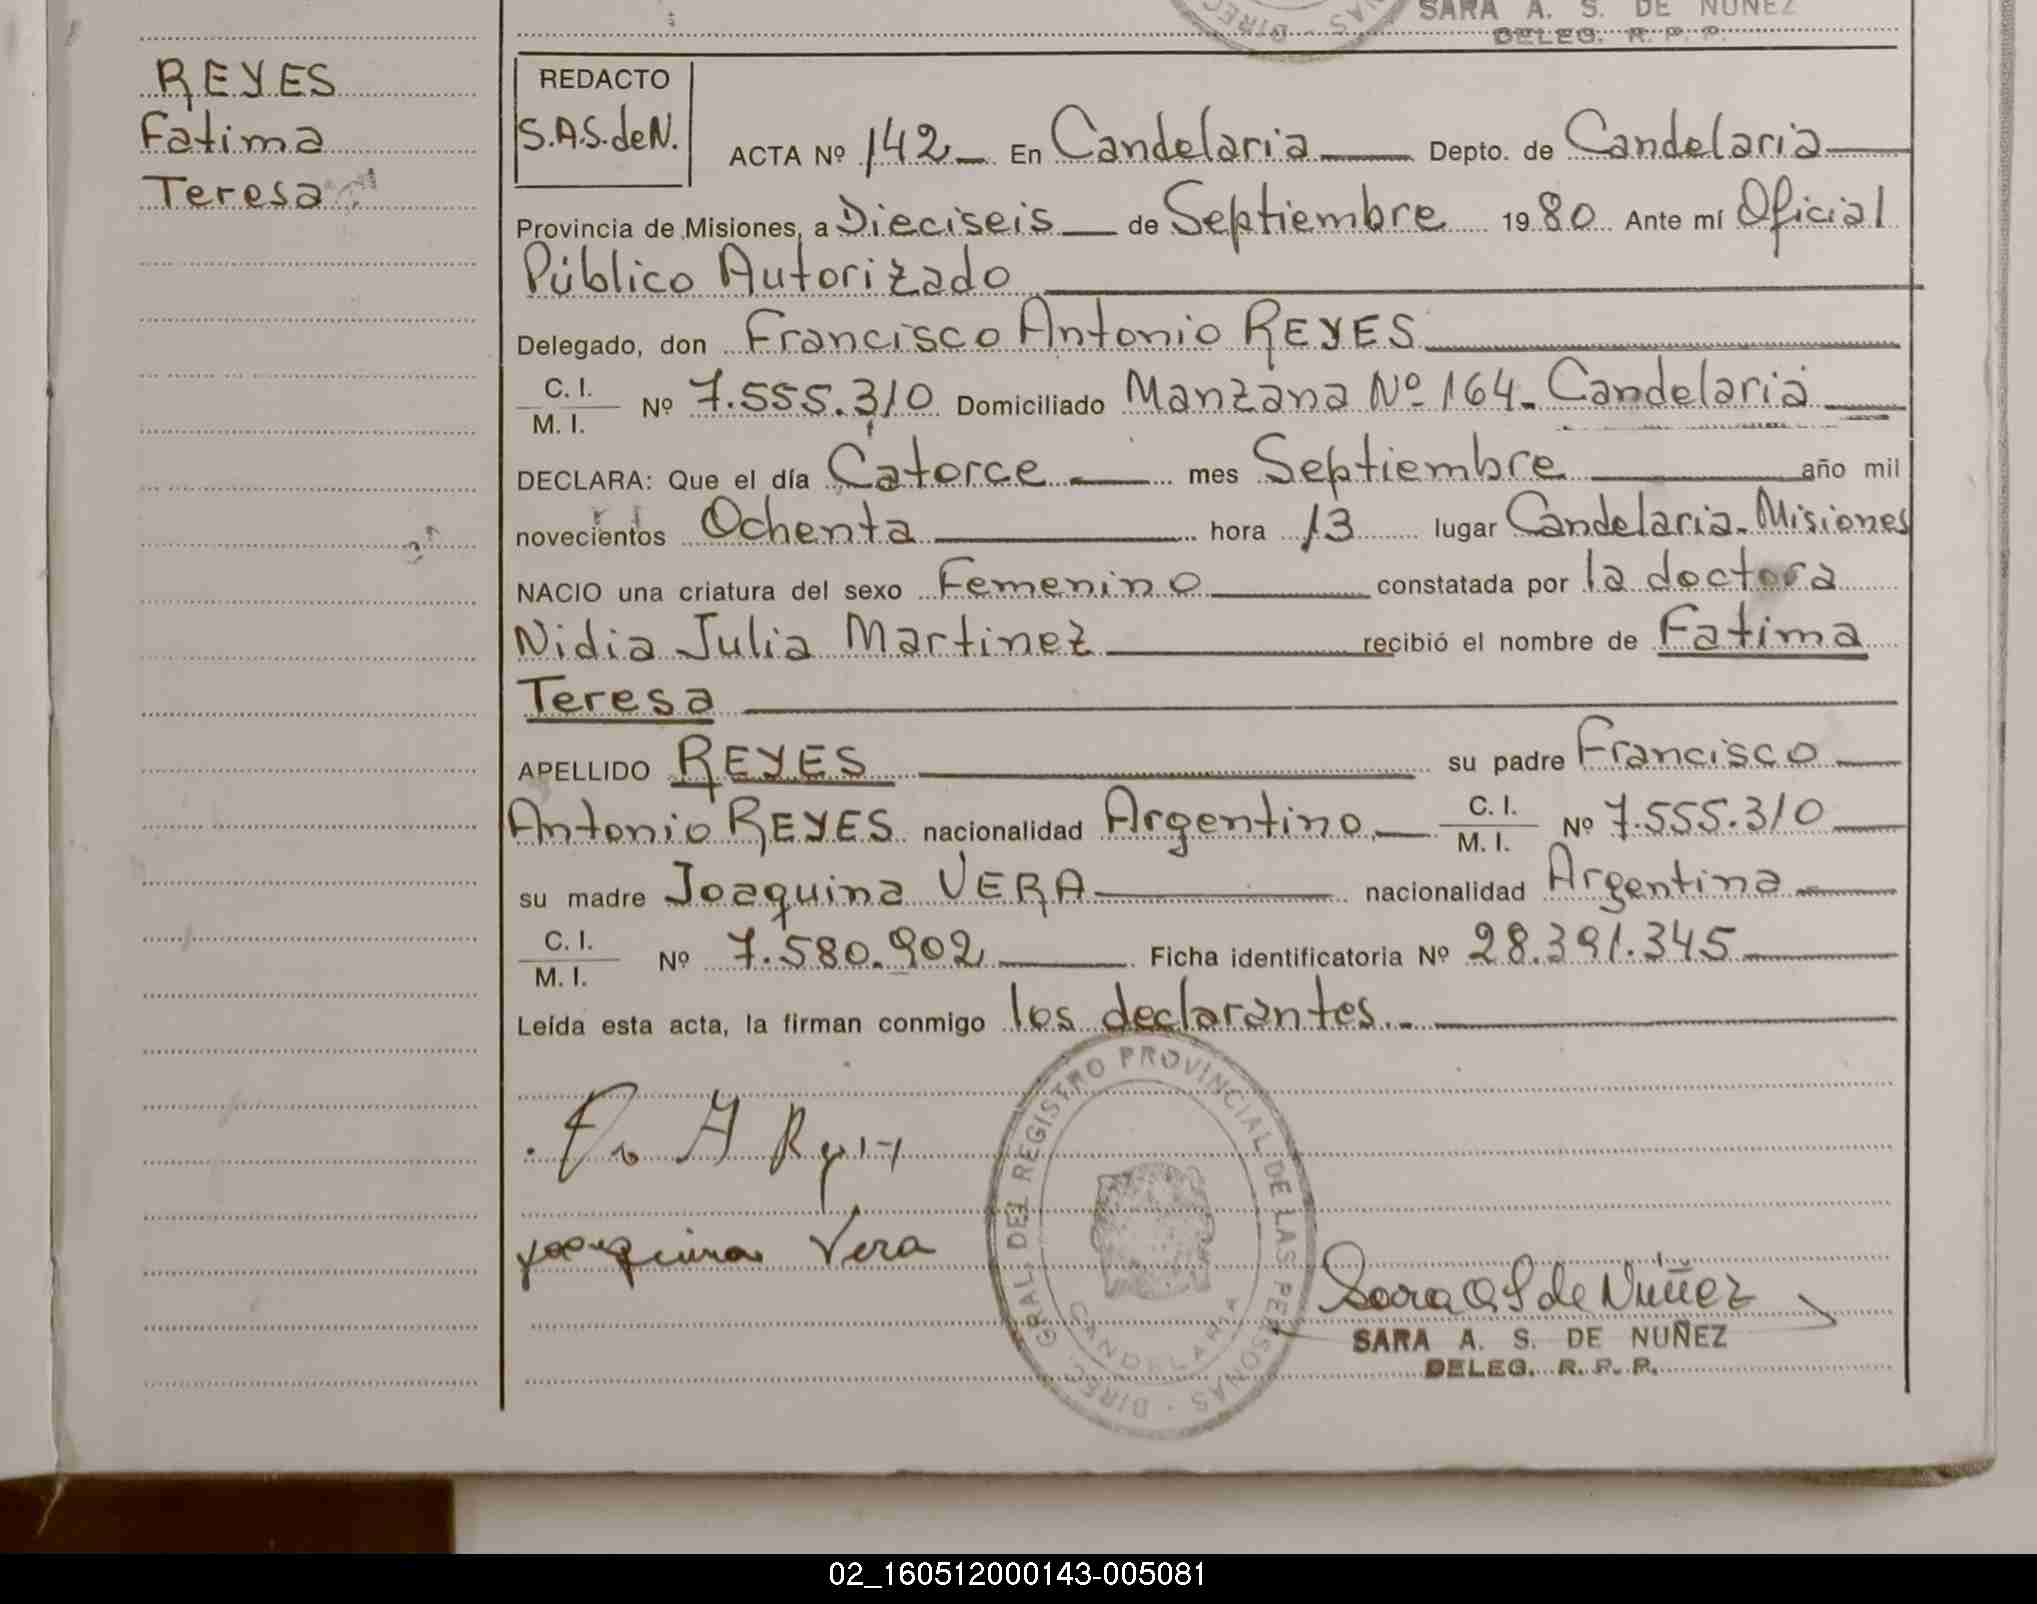 SARA A. S. DE NUÑEZ
DELEG. R. P. P.
REYES
Fatima
Teresa
REDACTO
S.A.S.deN.
ACTA Nº 142 En Candelaria Depto. de Candelaria
Provincia de Misiones, a Dieciseis de Septiembre 1980 Ante mí Oficial
Público Autorizado
Delegado, don Francisco Antonio REYES
C. I.
M. I.
Nº 7.555.310 Domiciliado Manzana Nº 164- Candelaria
DECLARA: Que el día Catorce mes Septiembre año mil
novecientos Ochenta hora 13 lugar Candelaria-Misiones
NACIO una criatura del sexo Femenino constatada por la doctora
Nidia Julia Martinez recibió el nombre de Fatima
Teresa
APELLIDO REYES su padre Francisco
Antonio REYES nacionalidad Argentino C. I.
M. I.
Nº 7.555.310
su madre Joaquina VERA nacionalidad Argentina
C. I.
M. I.
Nº 7.580.902 Ficha identificatoria Nº 28.391.345
Leída esta acta, la firman conmigo los declarantes.-
Joaquina Vera
DIREC. GRAL. DEL REGISTRO PROVINCIAL DE LAS PERSONAS
CANDELARIA
Sara A S de Nuñez
SARA A. S. DE NUÑEZ
DELEG. R. P. P.
02_160512000143-005081